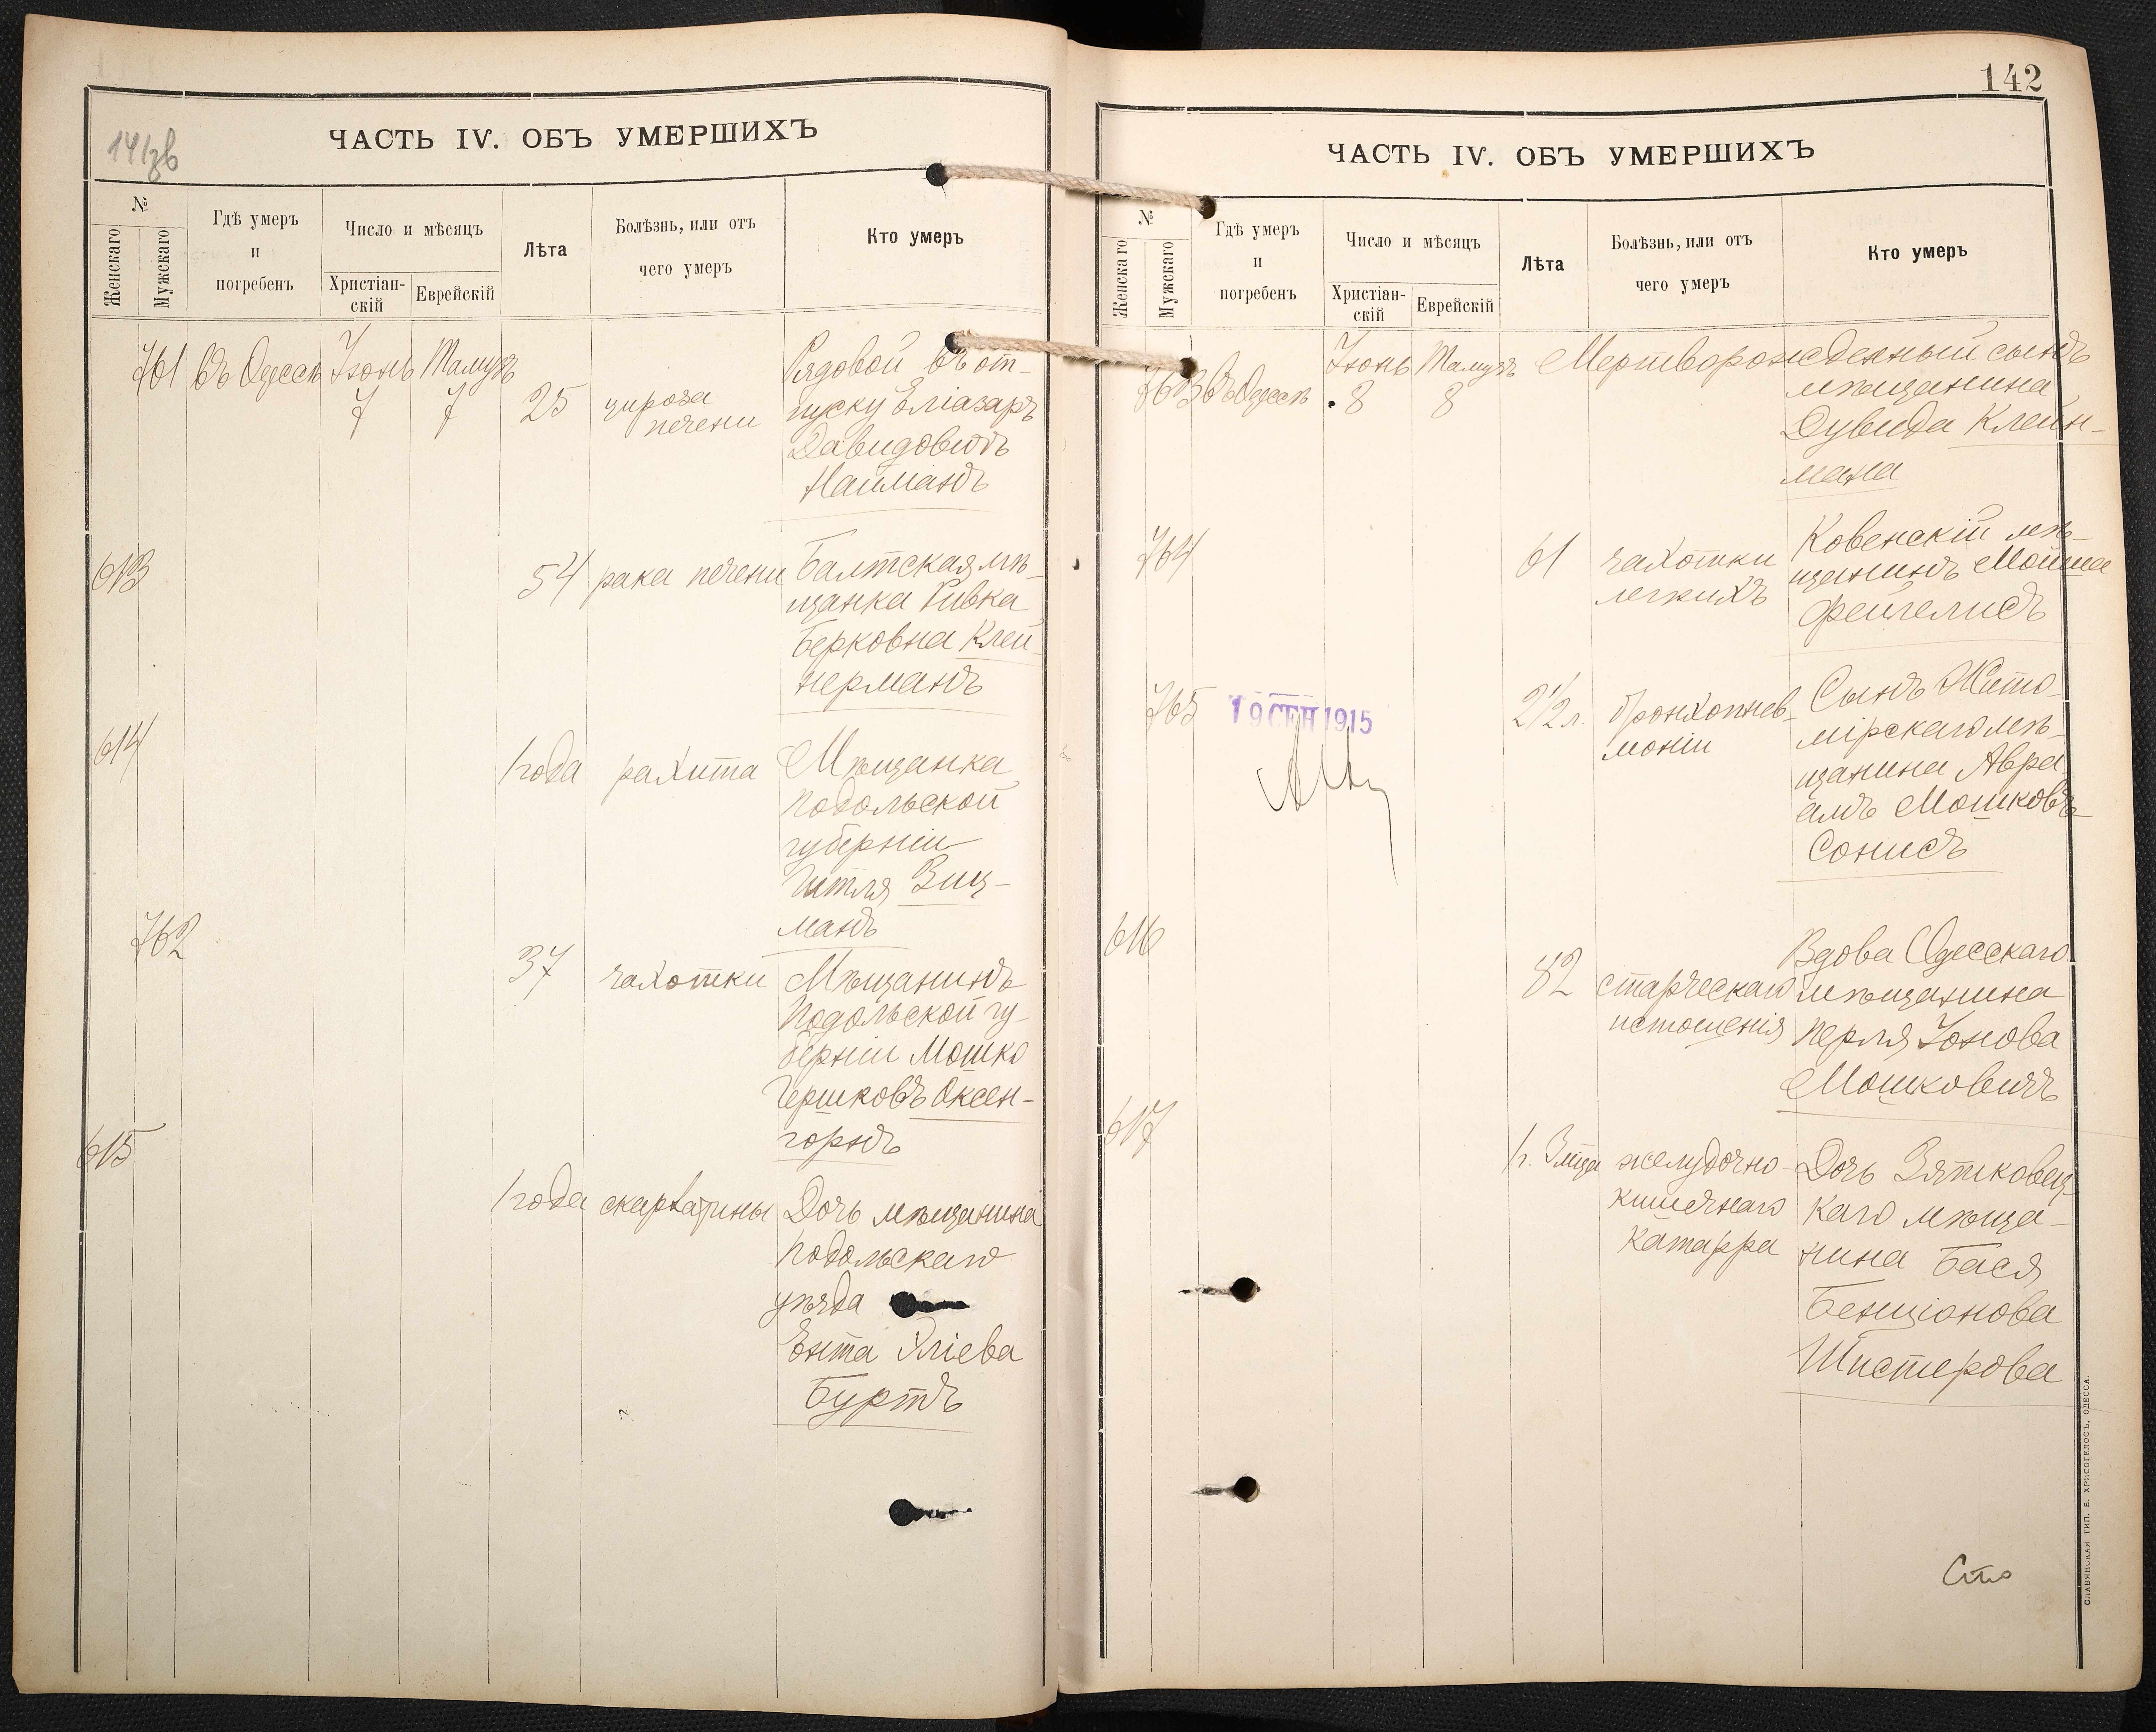 141зв
ЧАСТЬ IV. ОБЪ УМЕРШИХЪ
№
Женскаго
Мужскаго
Гдѣ умеръ
и
погребенъ
Число и мѣсяцъ
Христіан-
скій
Еврейскій
Лѣта
Болѣзнь, или отъ
чего умеръ
Кто умеръ
761 въ Одессѣ Іюнь Тамузъ
7 7 25 цироза
печени
Рядовой въ от-
пуску Еліазаръ
Давидовичъ
Найманъ
613 54 рака печени Балтская мѣ-
щанка Ривка
Берковна Клей-
нерманъ
614
1 года рахита Мѣщанка
Подольской
губерніи
Гитля Зиц-
манъ
762
37 чахотки Мѣщанинъ
Подольской гу-
берніи Мошко
Гершковъ Оксен-
горнъ
615
1 года скарлатины Дочь мѣщанина
Подольскаго
уѣзда
Ента Хлiева
Буртъ
142
ЧАСТЬ IV. ОБЪ УМЕРШИХЪ
№
Женскаго
Мужскаго
Гдѣ умеръ
и
погребенъ
Число и мѣсяцъ
Христіан-
скій
Еврейскій
Лѣта
Болѣзнь, или отъ
чего умеръ
Кто умеръ
Іюнь Тамузъ Мертворожденный сынъ
763 въ Одессѣ 8 8 мѣщанина
Дувида Клейн-
мана
764 61 чахотки
легкихъ
Ковенскій мѣ-
щанинъ Мойша
Фейгелисъ
765 19 СЕН 1915 2½ л. бронхопнев-
моніи
Сынъ Жито-
мірскаго мѣ-
щанина Авра-
амъ Мошковъ
Сонисъ
616
82 старческаго
истощенія
Вдова Одесскаго
мѣщанина
Перля Іонова
Мошковичъ
617
1 г. 3 мѣс. желудочно-
кишечнаго
катарра
Дочь Зятковец-
каго мѣща-
нина Бася
Бенціонова
Шистерова
Сто
СЛАВЯНСКАЯ ТИП. Е. ХРИСОГЕЛОСЪ, ОДЕССА.